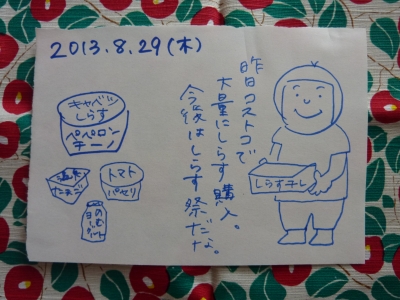 2013.8.29(木)
昨日コストコで
大量にしらす購入。
今後はしらす祭だな。
キャベツ
しらす
ペペロン
チーノ
温泉
たまご
トマト
パセリ
のむ
しらす干し